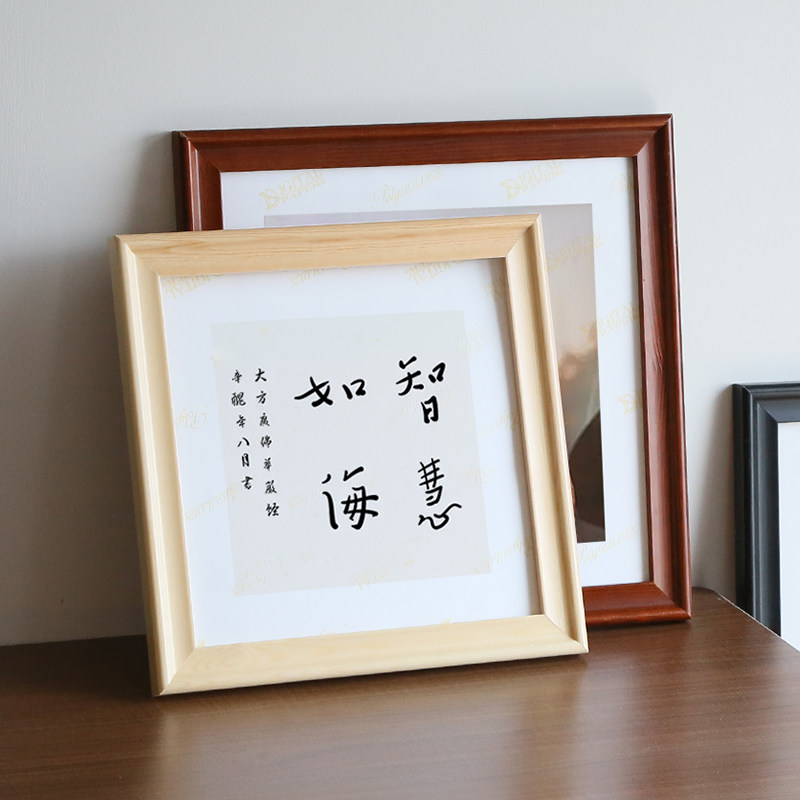 智慧
如海
大方廣佛華嚴經
辛醜年八月書